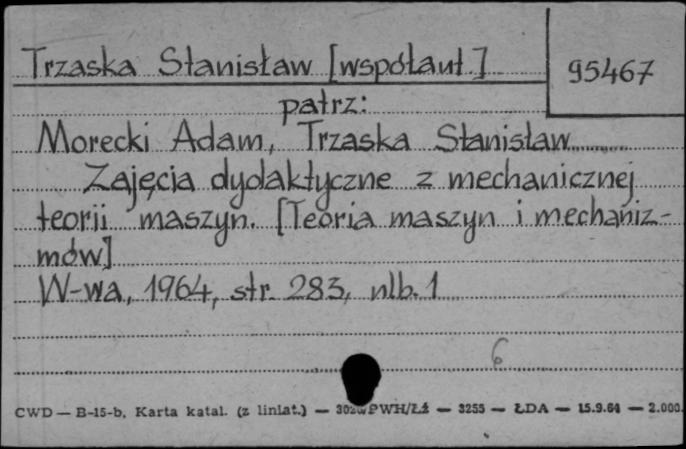 Trzaska Stanisław [współaut.] 95467
patrz:
Morecki Adam, Trzaska Stanisław
Zajęcia dydaktyczne z mechanicznej
teorii maszyn. [Teoria maszyn i mechaniz-
mów]
W-wa, 1964, str. 283, nlb. 1
6
CWD — B-15-b. Karta katal. (z liniat.) — PWH/Łż — 3255 — ŁDA — 15.9.61 — 2.000.